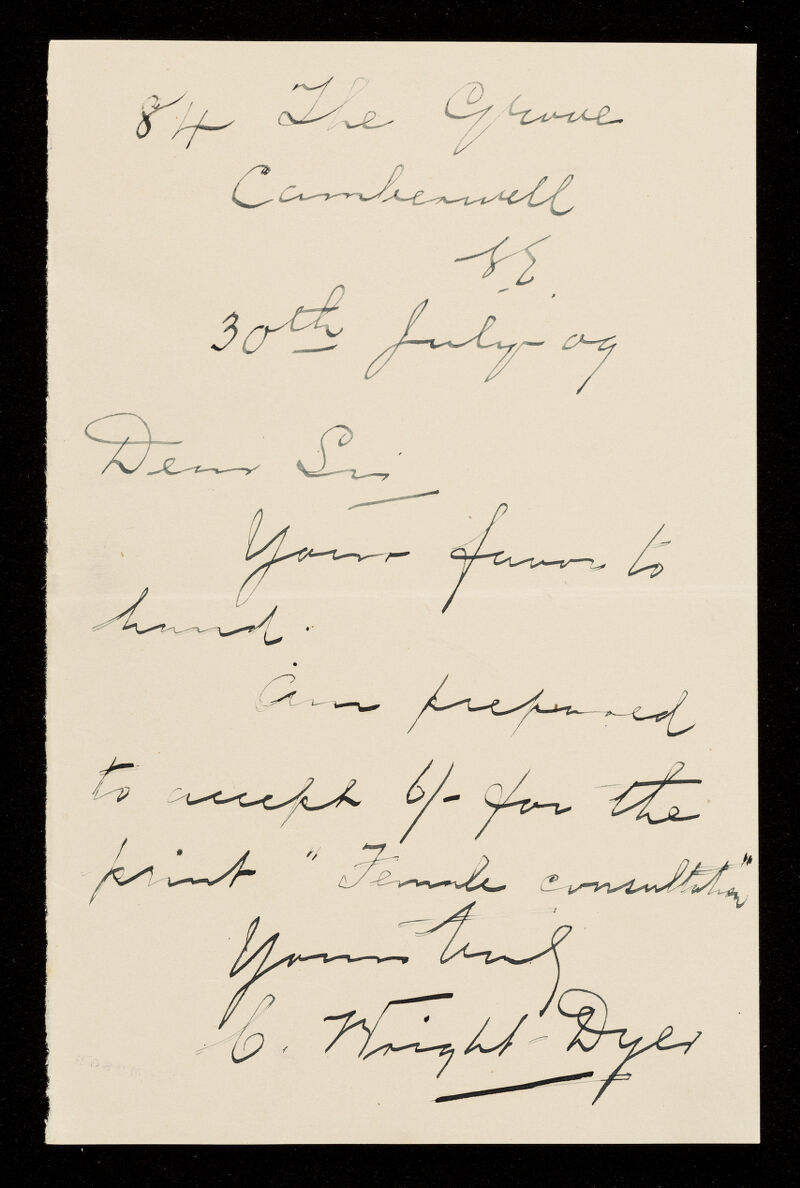 84 The Grove
Camberwell
S.E.
30th July 09
Dear Sir
Your favor to
hand.
Am prepared
to accept 6/- for the
print "Female consultation"
Yours truly
C. Wright-Dyer